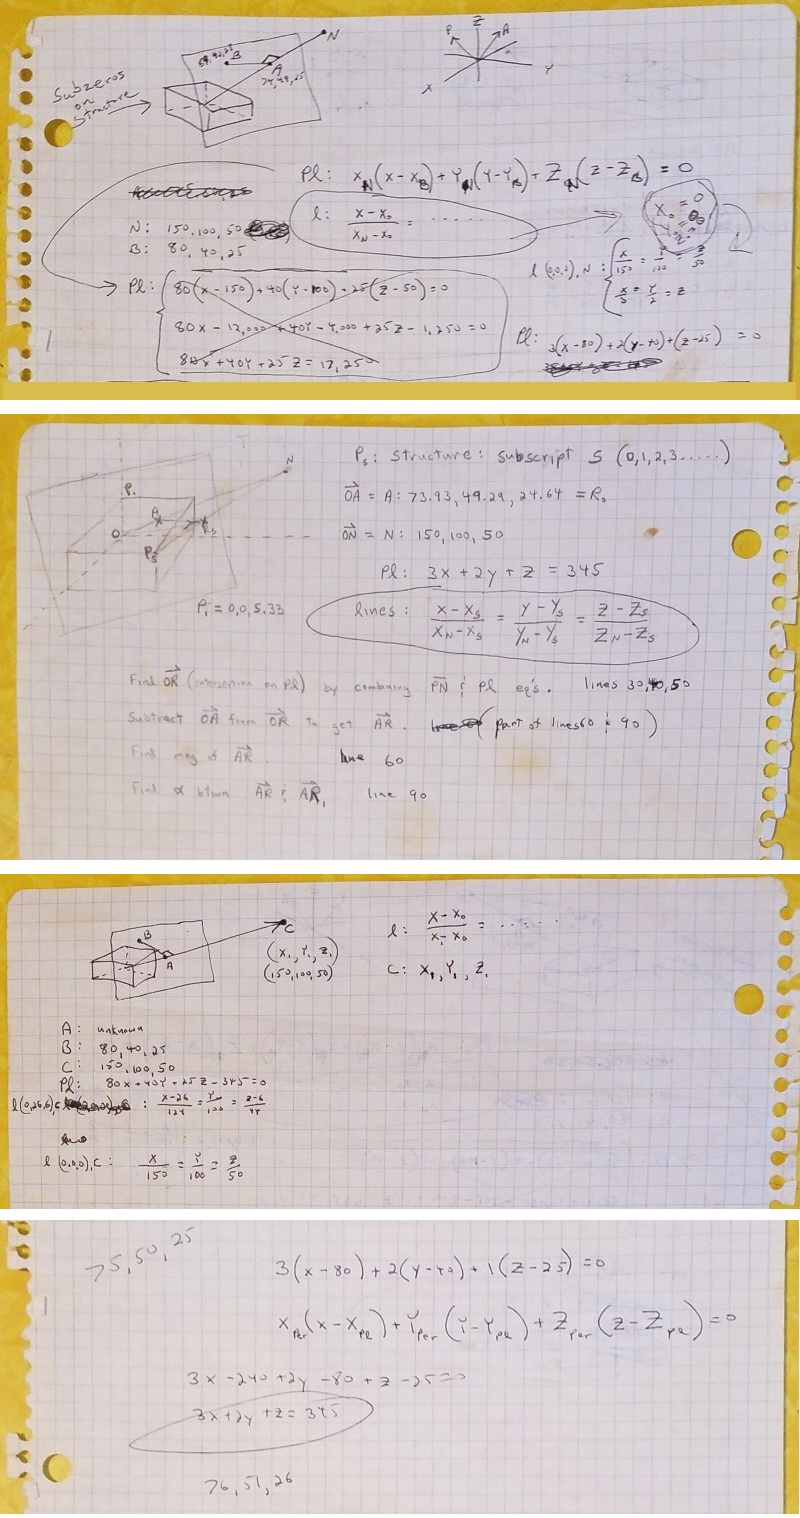 N
59,40,25
B
A
74,49,25
Subzeros
on
Structure
Z
P
A
X
Y
Pl: X_N(x-x_B) + Y_N(Y-Y_B) + Z_N(z-Z_B) = 0
N: 150,100,50
B: 80,40,25
l: (x-x₀)/(x_N-x₀) = ......
X₀ = 0
l (0,0,0), N: x/150 = Y/100 = z/50
x/3 = Y/2 = z
Pl: 80(x-150)+40(Y-100)+25(z-50)=0
80x-12,000+40Y-4,000+25z-1,250=0
80x+40Y+25z=17,250
Pl: 3(x-80)+2(y-40)+(z-25) = 0
Ps: structure: subscript S (0,1,2,3.....)
OA = A: 73.93, 49.29, 24.64 = R₀
ON = N: 150, 100, 50
Pl: 3x+2y+z = 345
N
P₁
A
O
Ps
Rs
P₁ = 0,0,5.33
lines: (x-xs)/(xN-xs) = (Y-Ys)/(YN-Ys) = (z-Zs)/(ZN-Zs)
Find OR (intersection on Pl) by combining PN & Pl eq's. lines 30,40,50
Subtract OA from OR to get AR. (part of lines 60 & 90)
Find mag of AR. line 60
Find α btwn AR & AR₁ line 90
C
B
A
(X₁, Y₁, Z₁)
(150,100,50)
l: (x-x₀)/(x₁-x₀) = ......
C: X₁, Y₁, Z₁
A: unknown
B: 80,40,25
C: 150,100,50
Pl: 80x+40Y+25z-345=0
l(0,26,6),C : (x-26)/124 = Y/100 = (z-6)/44
l (0,0,0),C: x/150 = Y/100 = z/50
75,50,25
3(x-80)+2(y-40)+1(z-25)=0
X_per(x-X_pl)+Y_per(Y-Y_pl)+Z_per(z-Z_pl)=0
3x-240+2y-80+z-25=0
3x+2y+z=345
76,51,26